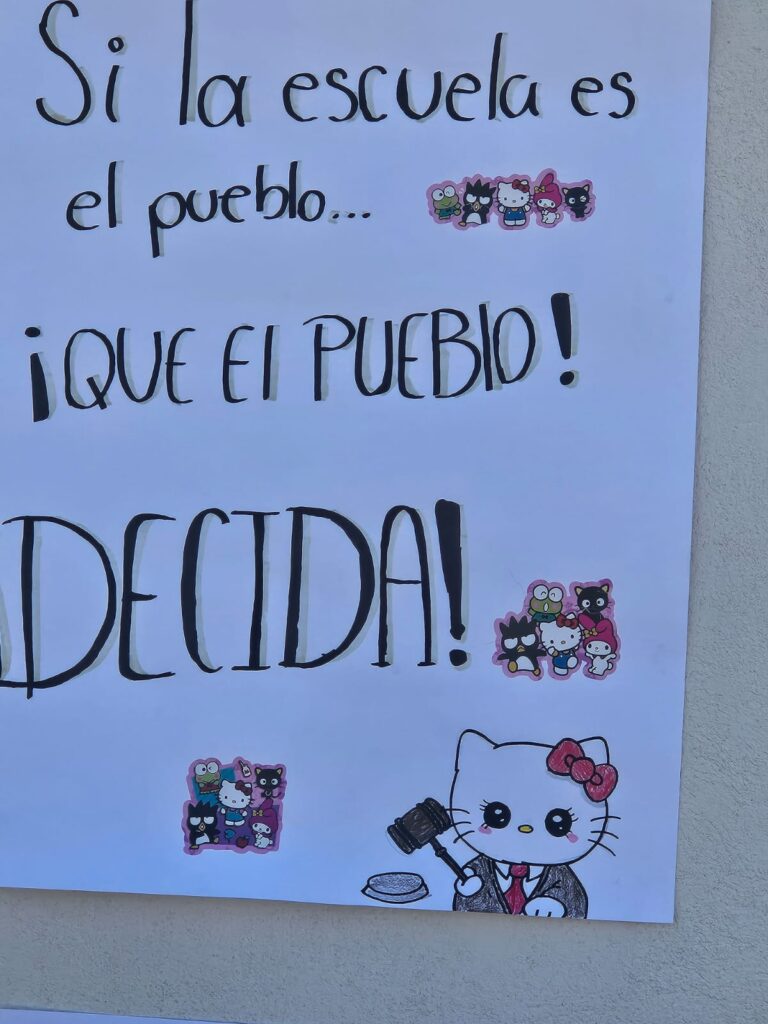 Si la escuela es
el pueblo...
¡QUE El PUEBlO!
DECIDA!